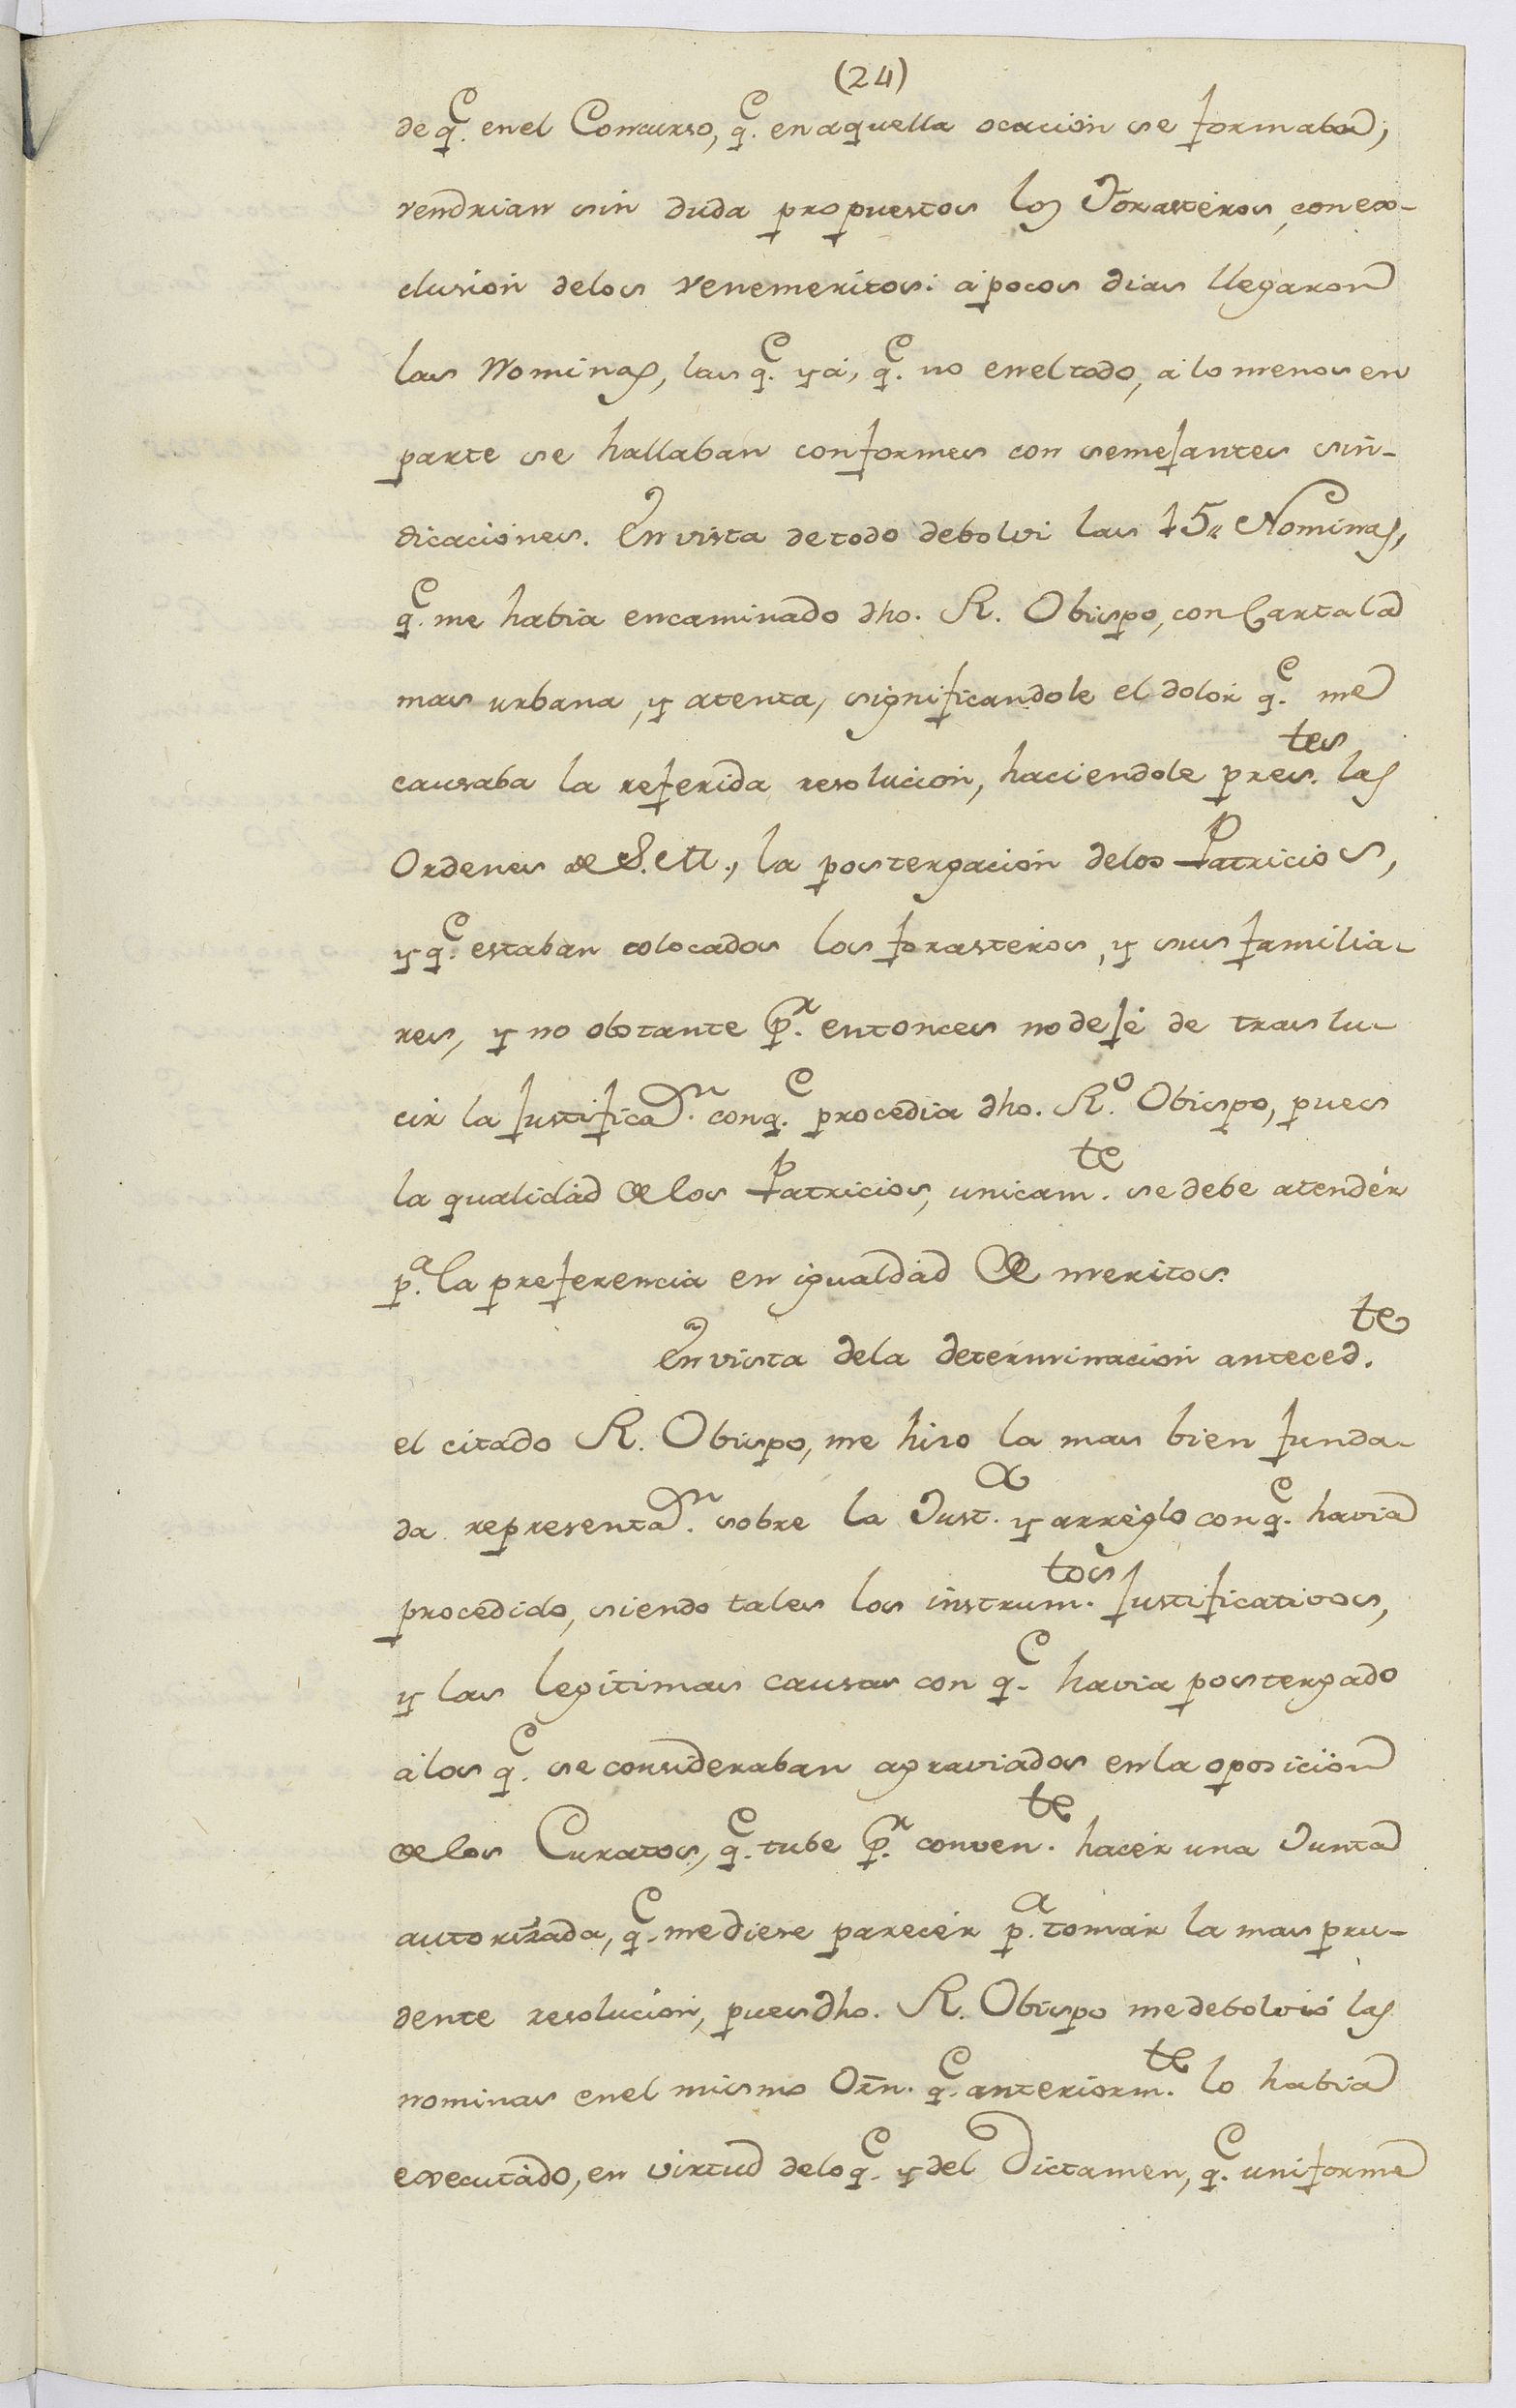 (24)
de q.e en el Concurso, q.e en aquella ocacion se formaba;
vendrian sin duda propuestos los Forasteros, con ex-
clusion de los venemeritos: á pocos dias llegaron
las Nominas, las q.e yá, q.e no en el todo, á lo menos en
parte se hallaban conformes con semejantes sin-
dicaciones. En vista de todo debolvi las 15,, Nominas,
q.e me habia encaminado dho. R. Obispo, con Carta la
mas urbana, y atenta, significandole el dolor q.e me
causaba la referida resolucion, haciendole pres.tes las
Ordenes de S. M., la postergacion de los Patricios,
y q.e estaban colocados los forasteros, y sus familia-
res, y no obstante p.r entonces no dejé de traslu-
cir la justificaon. con q.e procedia dho. R.o Obispo, pues
la qualidad de los Patricios, unicam.te se debe atender
p.a la preferencia en igualdad de meritos.
En vista de la determinacion anteced.te
el citado R. Obispo, me hizo la mas bien funda-
da representaon. sobre la Just.a y arreglo con q.e havia
procedido, siendo tales los instrum.tos justificativos,
y las legitimas causas con q.e havia postergado
á los q.e se consideraban agraviados en la oposicion
de los Curatos, q.e tube p.r conven.te hacer una Junta
autorizada, q.e me diese parecer p.a tomar la mas pru-
dente resolucion, pues dho. R. Obispo me debolvió las
nominas en el mismo Orn. q.e anteriorm.te lo habia
executado, en virtud de lo q.e y del Dictamen, q.e uniforme